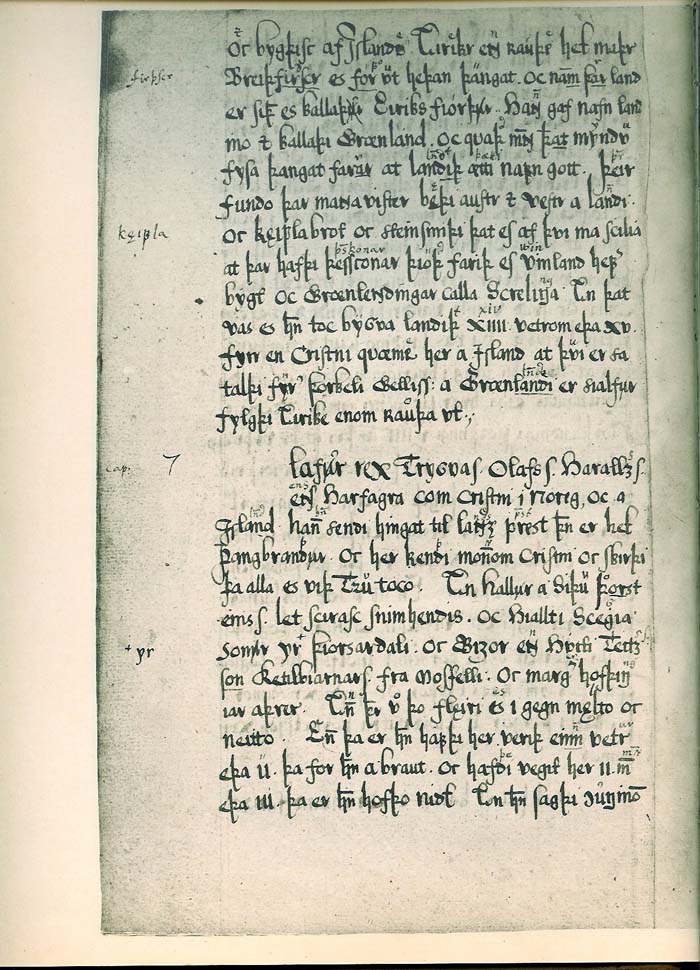 Oc bygþisc af Islande. Eirikr en rauþe het maþr
Breiþfirþscr es fór út heþan þangat. oc nam þar land
er siþan es kallaþr Eiriks fiorþr. Hann gaf nafn land
ino & kallaþi Grœnland. Oc quaþ menn þat myndu
fysa þangat farar at landit ætti nafn gott. Þeir
fundo þar manna vister bæþi austr & vestr a landi.
Oc kęipla brot oc steinsmiþi þat es af þvi ma scilia
at þar hafþi þessconar þióþ fariþ es Vinland heþer
bygt oc Grœnlendingar calla Screlinga. En þat
vas es hann toc bygva landit XIIII vetrom eþa XV.
fyrr en Cristni quæme her a Island at þvi er sa
talþi fyr Þorkeli Gelliss: a Grœnlandi er sialfur
fylgþi Eirike enom rauþa ut.
firþscr
kęipla
cap. 7
lafur rex Trygvas. Olafs s. Haralldz s.
ens Harfagra com Cristni i Noreg, oc a
Island. hann sendi hingat til landz prest þann er het
Þangbrandur. Oc her kendi monnom Cristni oc skirþi
þa alla es viþ Trú toco. En Hallur a Siþu Þorst
eins s. let scirasc snimhendis. oc Hiallti Scegia
sonur yr Þiorsardali. oc Gizor en Hviti Teitz
son Ketilbiarnars. fra Mosfelli. Oc marger hofþing
iar aþrer. En þeir vo þo fleiri es i gegn męlto oc
neitto. En þa er hann hafþi her verit einn vetr
eþa II. þa for hann a braut. oc hafdi vegit her II. menn
eþa III. þa er hann hofþo nidt. En hann sagþi
+ yr